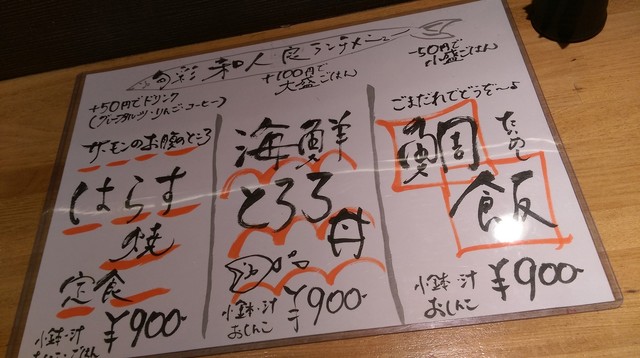 旬彩 和人 良 ランチメニュー
+100円で
大盛ごはん
-50円で
小盛ごはん
+50円でドリンク
(グレープフルーツ・りんご・コーヒー)
サーモンのお腹のところ
はらす
焼
定食
小鉢・汁
¥900-
海鮮
とろろ
丼
小鉢・汁
おしんこ
¥900-
ごまだれでどうぞ〜♪
鯛
たいめし
飯
小鉢・汁
おしんこ
¥900-